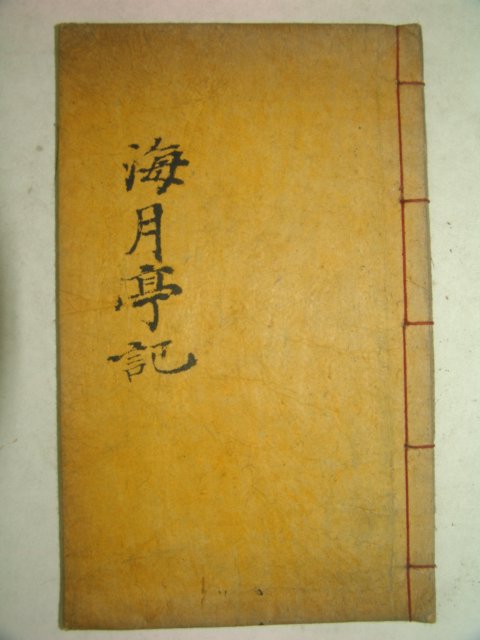 海月亭記